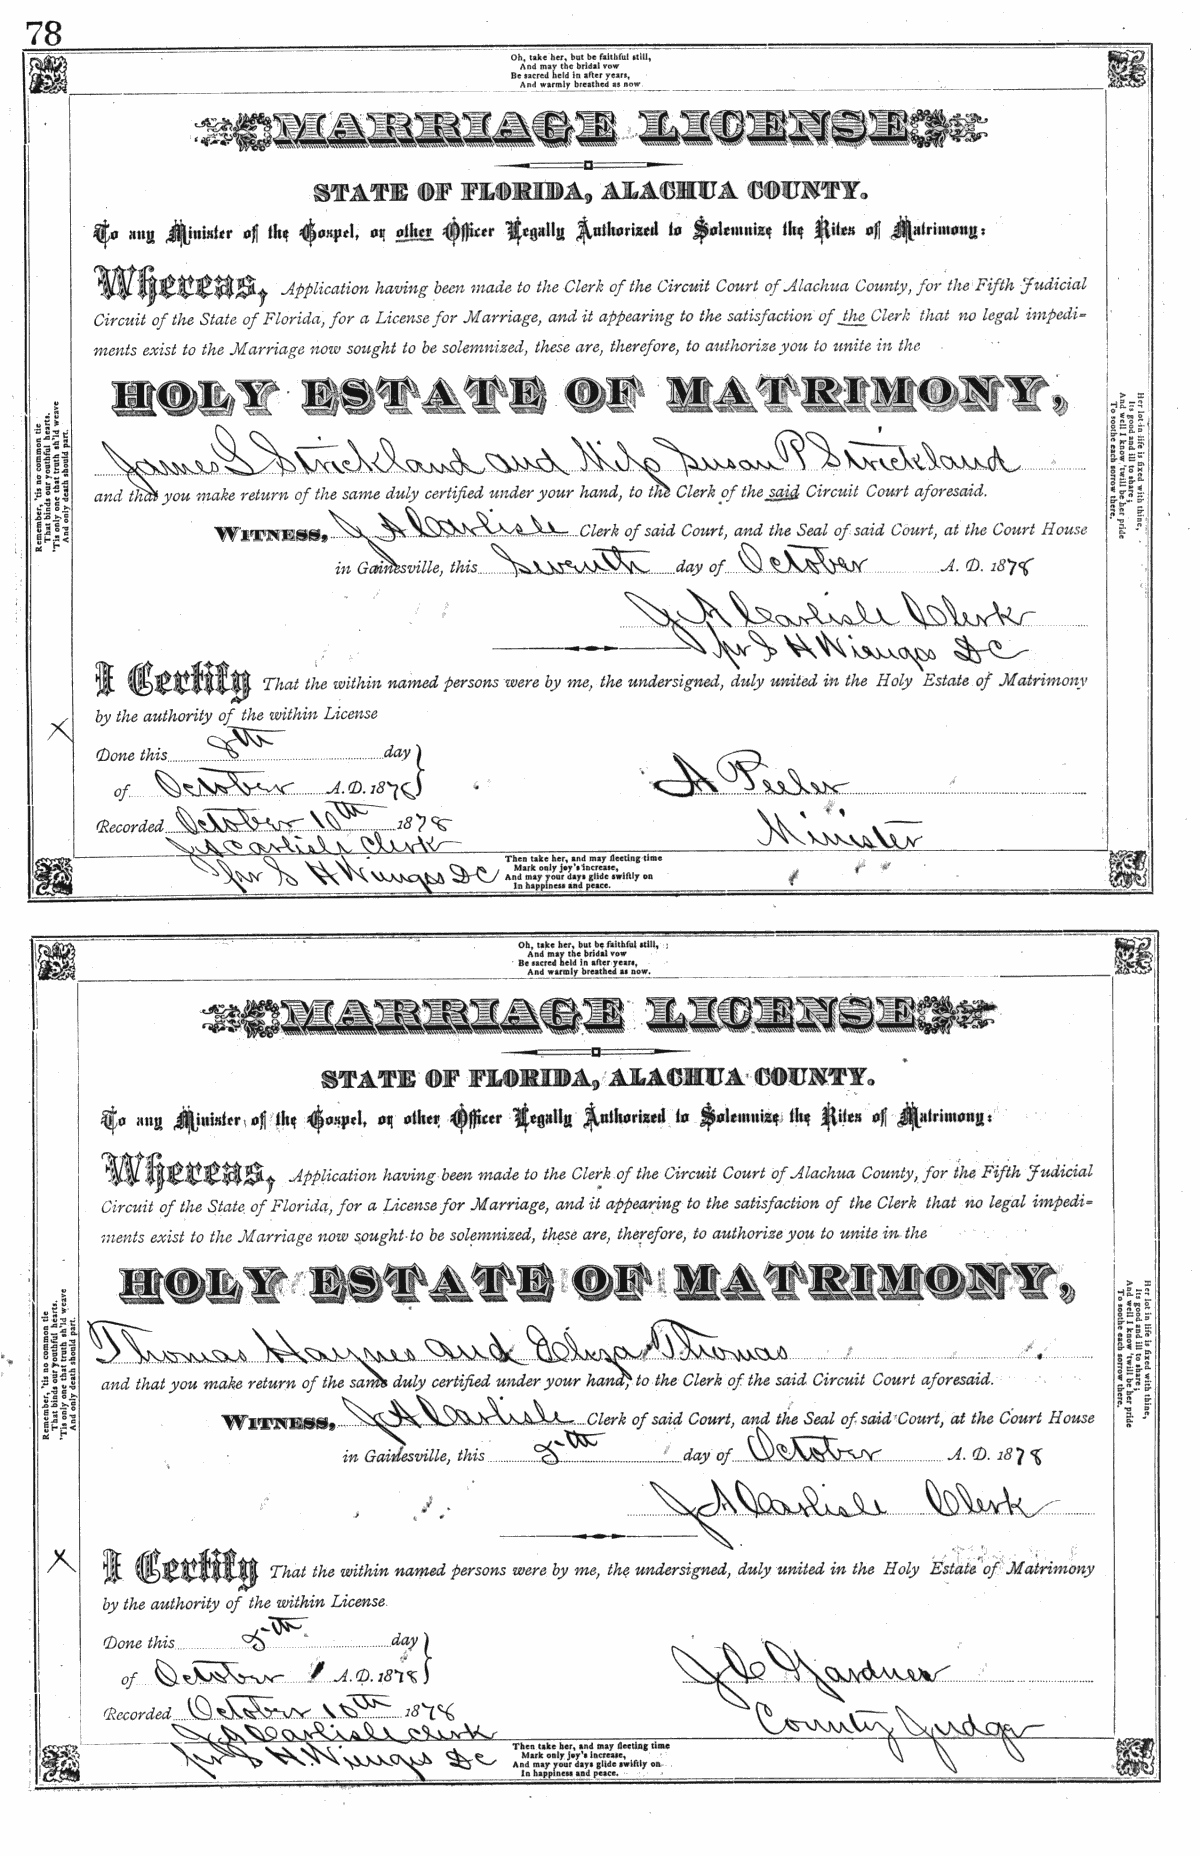 78
Oh, take her, but be faithful still,
And may the bridal vow
Be sacred held in after years,
And warmly breathed as now
MARRIAGE LICENSE
STATE OF FLORIDA, ALACHUA COUNTY.
To any Minister of the Gospel, or other Officer Legally Authorized to Solemnize the Rites of Matrimony:
Whereas, Application having been made to the Clerk of the Circuit Court of Alachua County, for the Fifth Judicial
Circuit of the State of Florida, for a License for Marriage, and it appearing to the satisfaction of the Clerk that no legal impedi=
ments exist to the Marriage now sought to be solemnized, these are, therefore, to authorize you to unite in the
HOLY ESTATE OF MATRIMONY,
James S Strickland and Miss Susan P Strickland
and that you make return of the same duly certified under your hand, to the Clerk of the said Circuit Court aforesaid.
WITNESS, J A Carlisle Clerk of said Court, and the Seal of said Court, at the Court House
in Gainesville, this Seventh day of October A. D. 1878
J A Carlisle Clerk
pr S H Wienges DC
I Certify That the within named persons were by me, the undersigned, duly united in the Holy Estate of Matrimony
by the authority of the within License
Done this 8th day
of October A.D. 1878
A Peeler
Recorded October 10th 1878
Minister
J A Carlisle Clerk
pr S H Wienges DC
Then take her, and may fleeting time
Mark only joy's increase,
And may your days glide swiftly on
In happiness and peace.
Remember, 'tis no common tie
That binds our youthful hearts.
'Tis only one that truth sh'ld weave
And only death should part.
Her lot in life is fixed with thine,
Its good and ill to share;
And well I know 'twill be her pride
To soothe each sorrow there.
Oh, take her, but be faithful still,
And may the bridal vow
Be sacred held in after years,
And warmly breathed as now.
MARRIAGE LICENSE
STATE OF FLORIDA, ALACHUA COUNTY.
To any Minister of the Gospel, or other Officer Legally Authorized to Solemnize the Rites of Matrimony:
Whereas, Application having been made to the Clerk of the Circuit Court of Alachua County, for the Fifth Judicial
Circuit of the State of Florida, for a License for Marriage, and it appearing to the satisfaction of the Clerk that no legal impedi=
ments exist to the Marriage now sought to be solemnized, these are, therefore, to authorize you to unite in the
HOLY ESTATE OF MATRIMONY,
Thomas Haynes and Eliza Thomas
and that you make return of the same duly certified under your hand, to the Clerk of the said Circuit Court aforesaid.
WITNESS, J A Carlisle Clerk of said Court, and the Seal of said Court, at the Court House
in Gainesville, this 8th day of October A. D. 1878
J A Carlisle Clerk
I Certify That the within named persons were by me, the undersigned, duly united in the Holy Estate of Matrimony
by the authority of the within License.
Done this 8th day
of October A.D. 1878
J C Gardner
Recorded October 10th 1878
County Judge
J A Carlisle Clerk
pr S H. Wienges DC
Then take her, and may fleeting time
Mark only joy's increase,
And may your days glide swiftly on
In happiness and peace.
Remember, 'tis no common tie
That binds our youthful hearts.
'Tis only one that truth sh'ld weave
And only death should part.
Her lot in life is fixed with thine,
Its good and ill to share;
And well I know 'twill be her pride
To soothe each sorrow there.